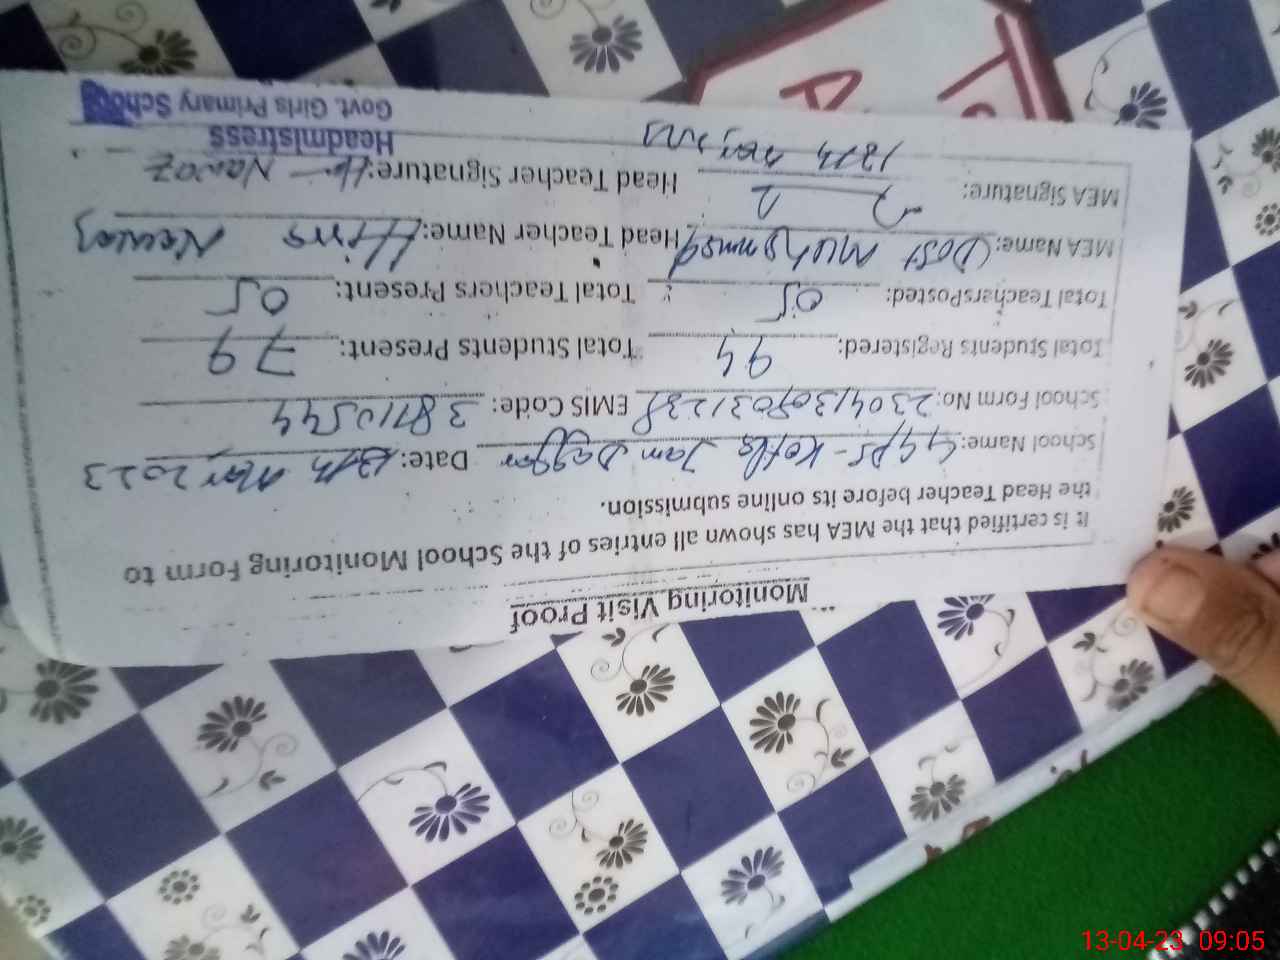 Monitoring Visit Proof
It is certified that the MEA has shown all entries of the School Monitoring Form to
the Head Teacher before its online submission.
School Name: GGPS - Kotla Jam Date: 13th 2023
School Form No: EMIS Code: 38110544
Total Students Registered: 94 Total Students Present: 79
Total Teachers Posted: 05 Total Teachers Present: 05
MEA Name: Dost Muhammad Head Teacher Name: Hira Nawaz
MEA Signature: Head Teacher Signature: Nawaz
Headmistress
Govt. Girls Primary School
13-04-23 09:05